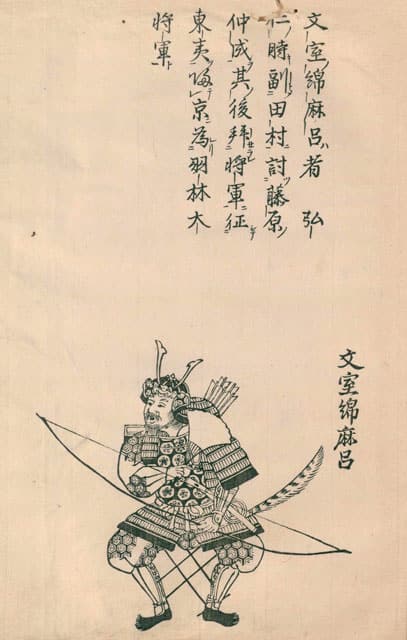 文室綿麻呂者弘
仁時副田村討藤原
仲成其後拜將軍征
東夷皈京為羽林大
將軍
文室綿麻呂